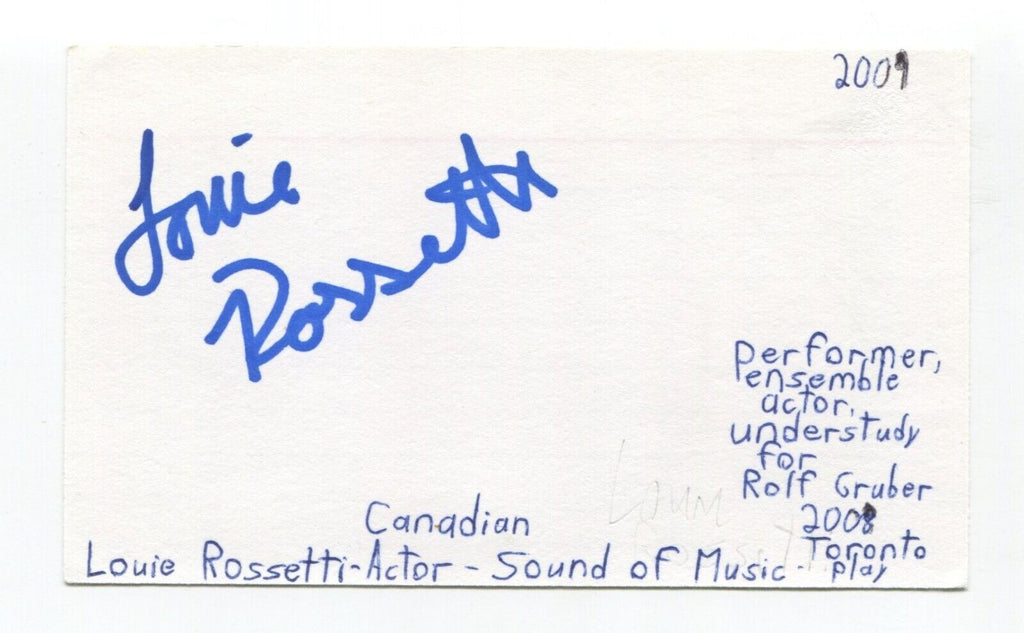 2009
Louie
Rossetti
performer,
ensemble
actor,
understudy
for
Rolf Gruber
2008
Toronto
play
Canadian
Louie Rossetti-Actor - Sound of Music -